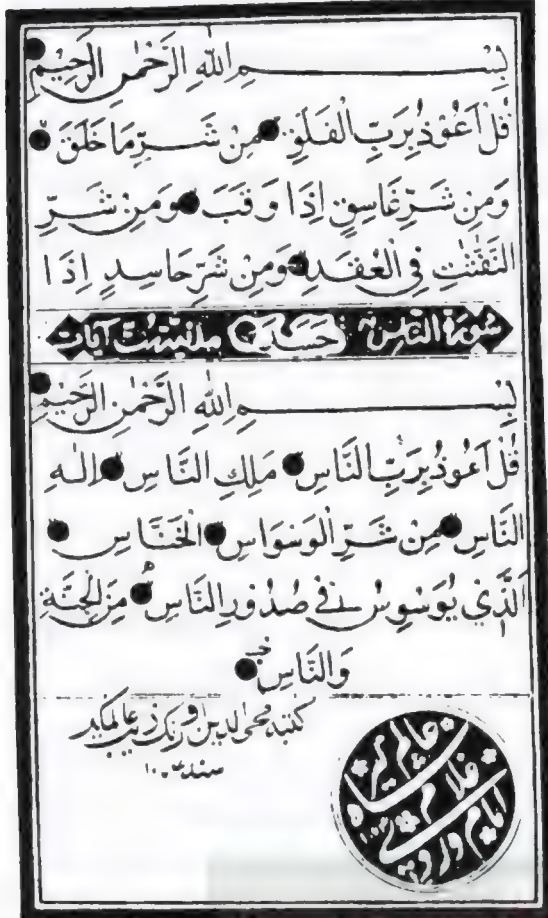 بِسْمِ اللهِ الرَّحْمٰنِ الرَّحِيْمِ
قُلْ اَعُوْذُ بِرَبِّ الْفَلَقِ مِنْ شَرِّ مَا خَلَقَ
وَمِنْ شَرِّ غَاسِقٍ اِذَا وَقَبَ وَمِنْ شَرِّ
النَّفّٰثٰتِ فِي الْعُقَدِ وَمِنْ شَرِّ حَاسِدٍ اِذَا
سُوْرَةُ النَّاسِ حَسَدَ آيات
بِسْمِ اللهِ الرَّحْمٰنِ الرَّحِيْمِ
قُلْ اَعُوْذُ بِرَبِّ النَّاسِ مَلِكِ النَّاسِ اِلٰهِ
النَّاسِ مِنْ شَرِّ الْوَسْوَاسِ الْخَنَّاسِ
الَّذِيْ يُوَسْوِسُ فِيْ صُدُوْرِ النَّاسِ مِنَ الْجِنَّةِ
وَالنَّاسِ
كتبه محى الدين اورنگ زيب عالمگير
عالم گير
شاه
غلام
امام وردي